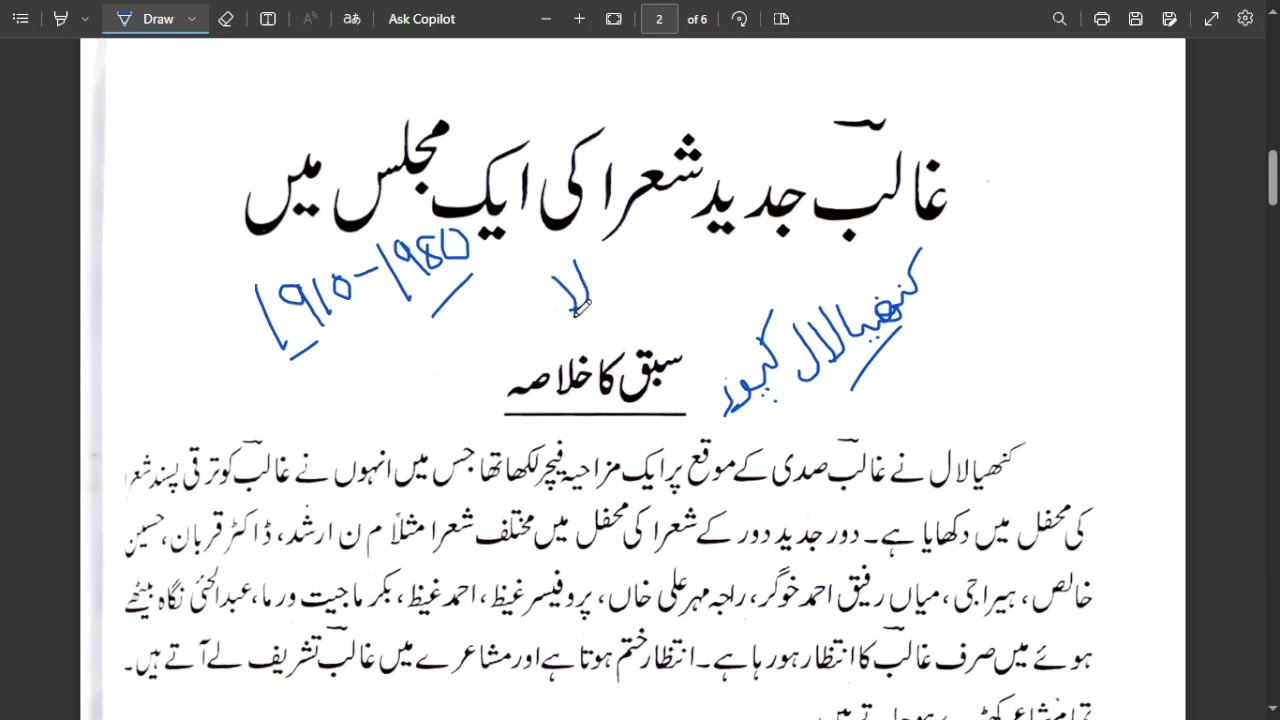 Draw
Ask Copilot
2 of 6
غالبؔ جدید شعرا کی ایک مجلس میں
1910-1980
لا
کنھیا لال کپور
سبق کا خلاصہ
کنھیا لال نے غالبؔ صدی کے موقع پر ایک مزاحیہ فیچر لکھا تھا جس میں انہوں نے غالبؔ کو ترقی پسند شعرا
کی محفل میں دکھایا ہے۔ دور جدید دور کے شعرا کی محفل میں مختلف شعرا مثلاً م ن ارشد، ڈاکٹر قربان، حسین
خالص، ہیراجی، میاں رفیق احمد خوگر، راجہ مہر علی خاں، پروفیسر غیظ، احمد غیظ، بکرماجیت ورما، عبدالحئی نگاہ بیٹھے
ہوئے میں صرف غالبؔ کا انتظار ہو رہا ہے۔ انتظار ختم ہوتا ہے اور مشاعرے میں غالبؔ تشریف لے آتے ہیں۔